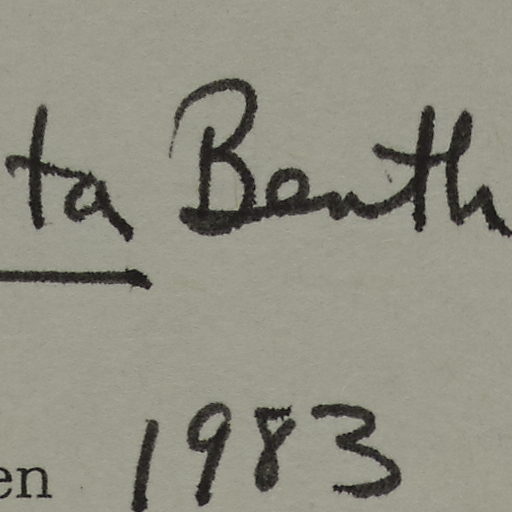 ta Benth
en 1983